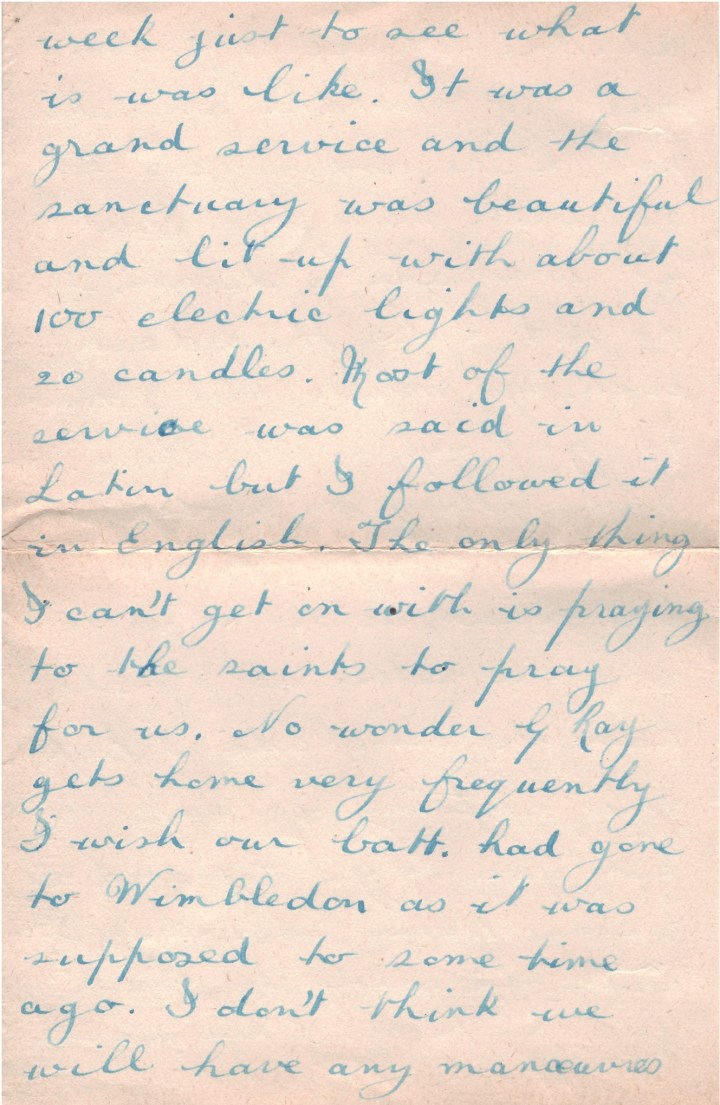 week just to see what
is was like. It was a
grand service and the
sanctuary was beautiful
and lit up with about
100 electric lights and
20 candles. Most of the
service was said in
Latin but I followed it
in English. The only thing
I can't get on with is praying
to the saints to pray
for us. No wonder G Ray
gets home very frequently
I wish our batt. had gone
to Wimbledon as it was
supposed to some time
ago. I don't think we
will have any manœuvres